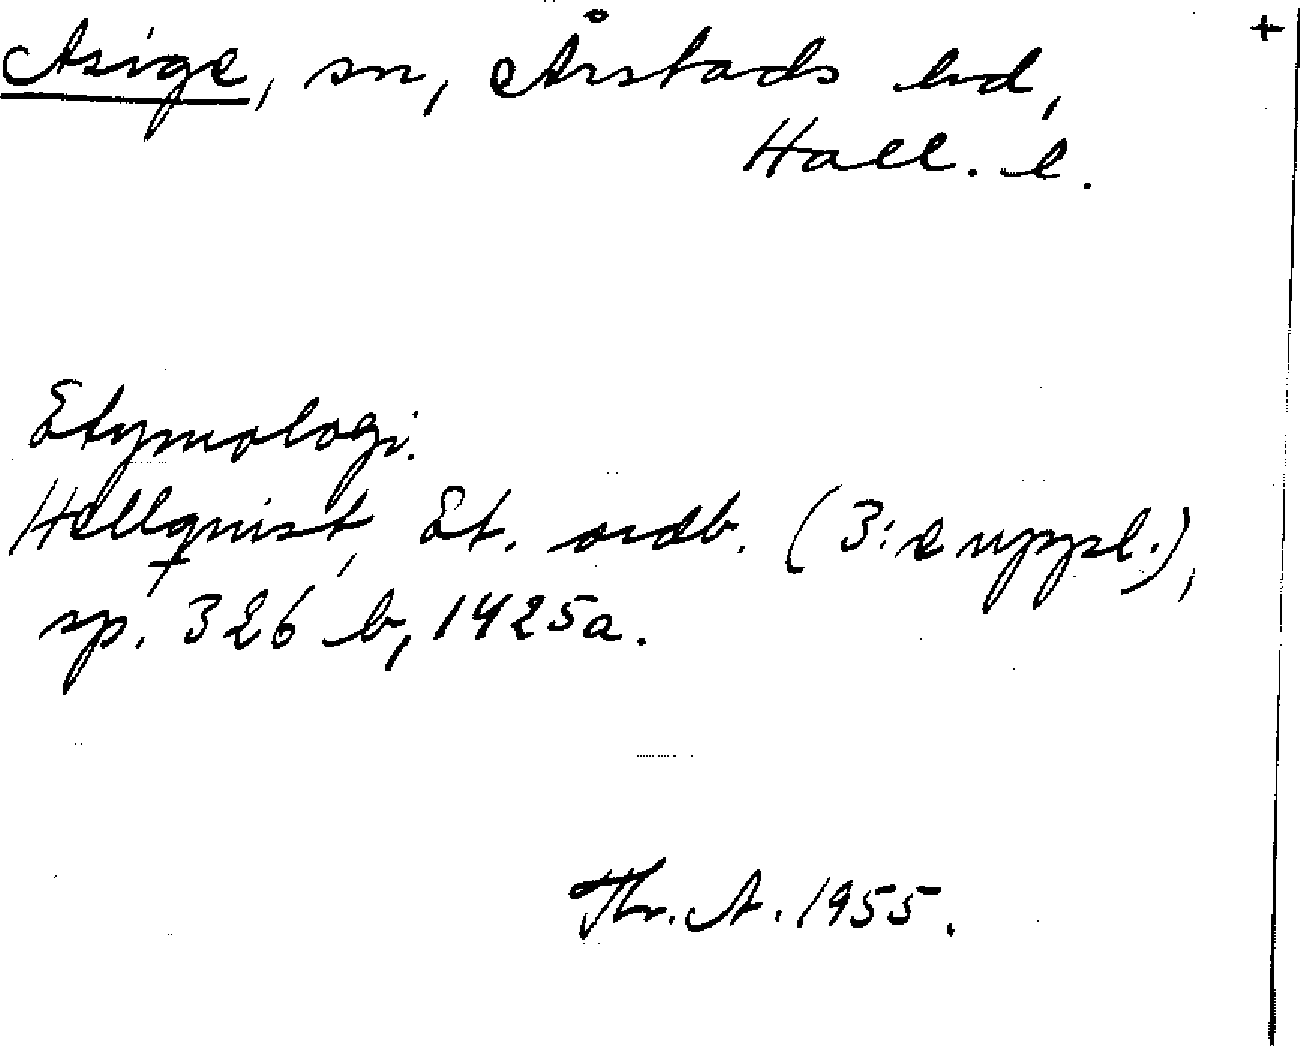 Asige, sn, Årstads hd, +
Hall. l.
Etymologi.
Hellquist, Et. ordb. (3:e uppl.),
sp. 326 b, 1425a.
Thr. A. 1955.